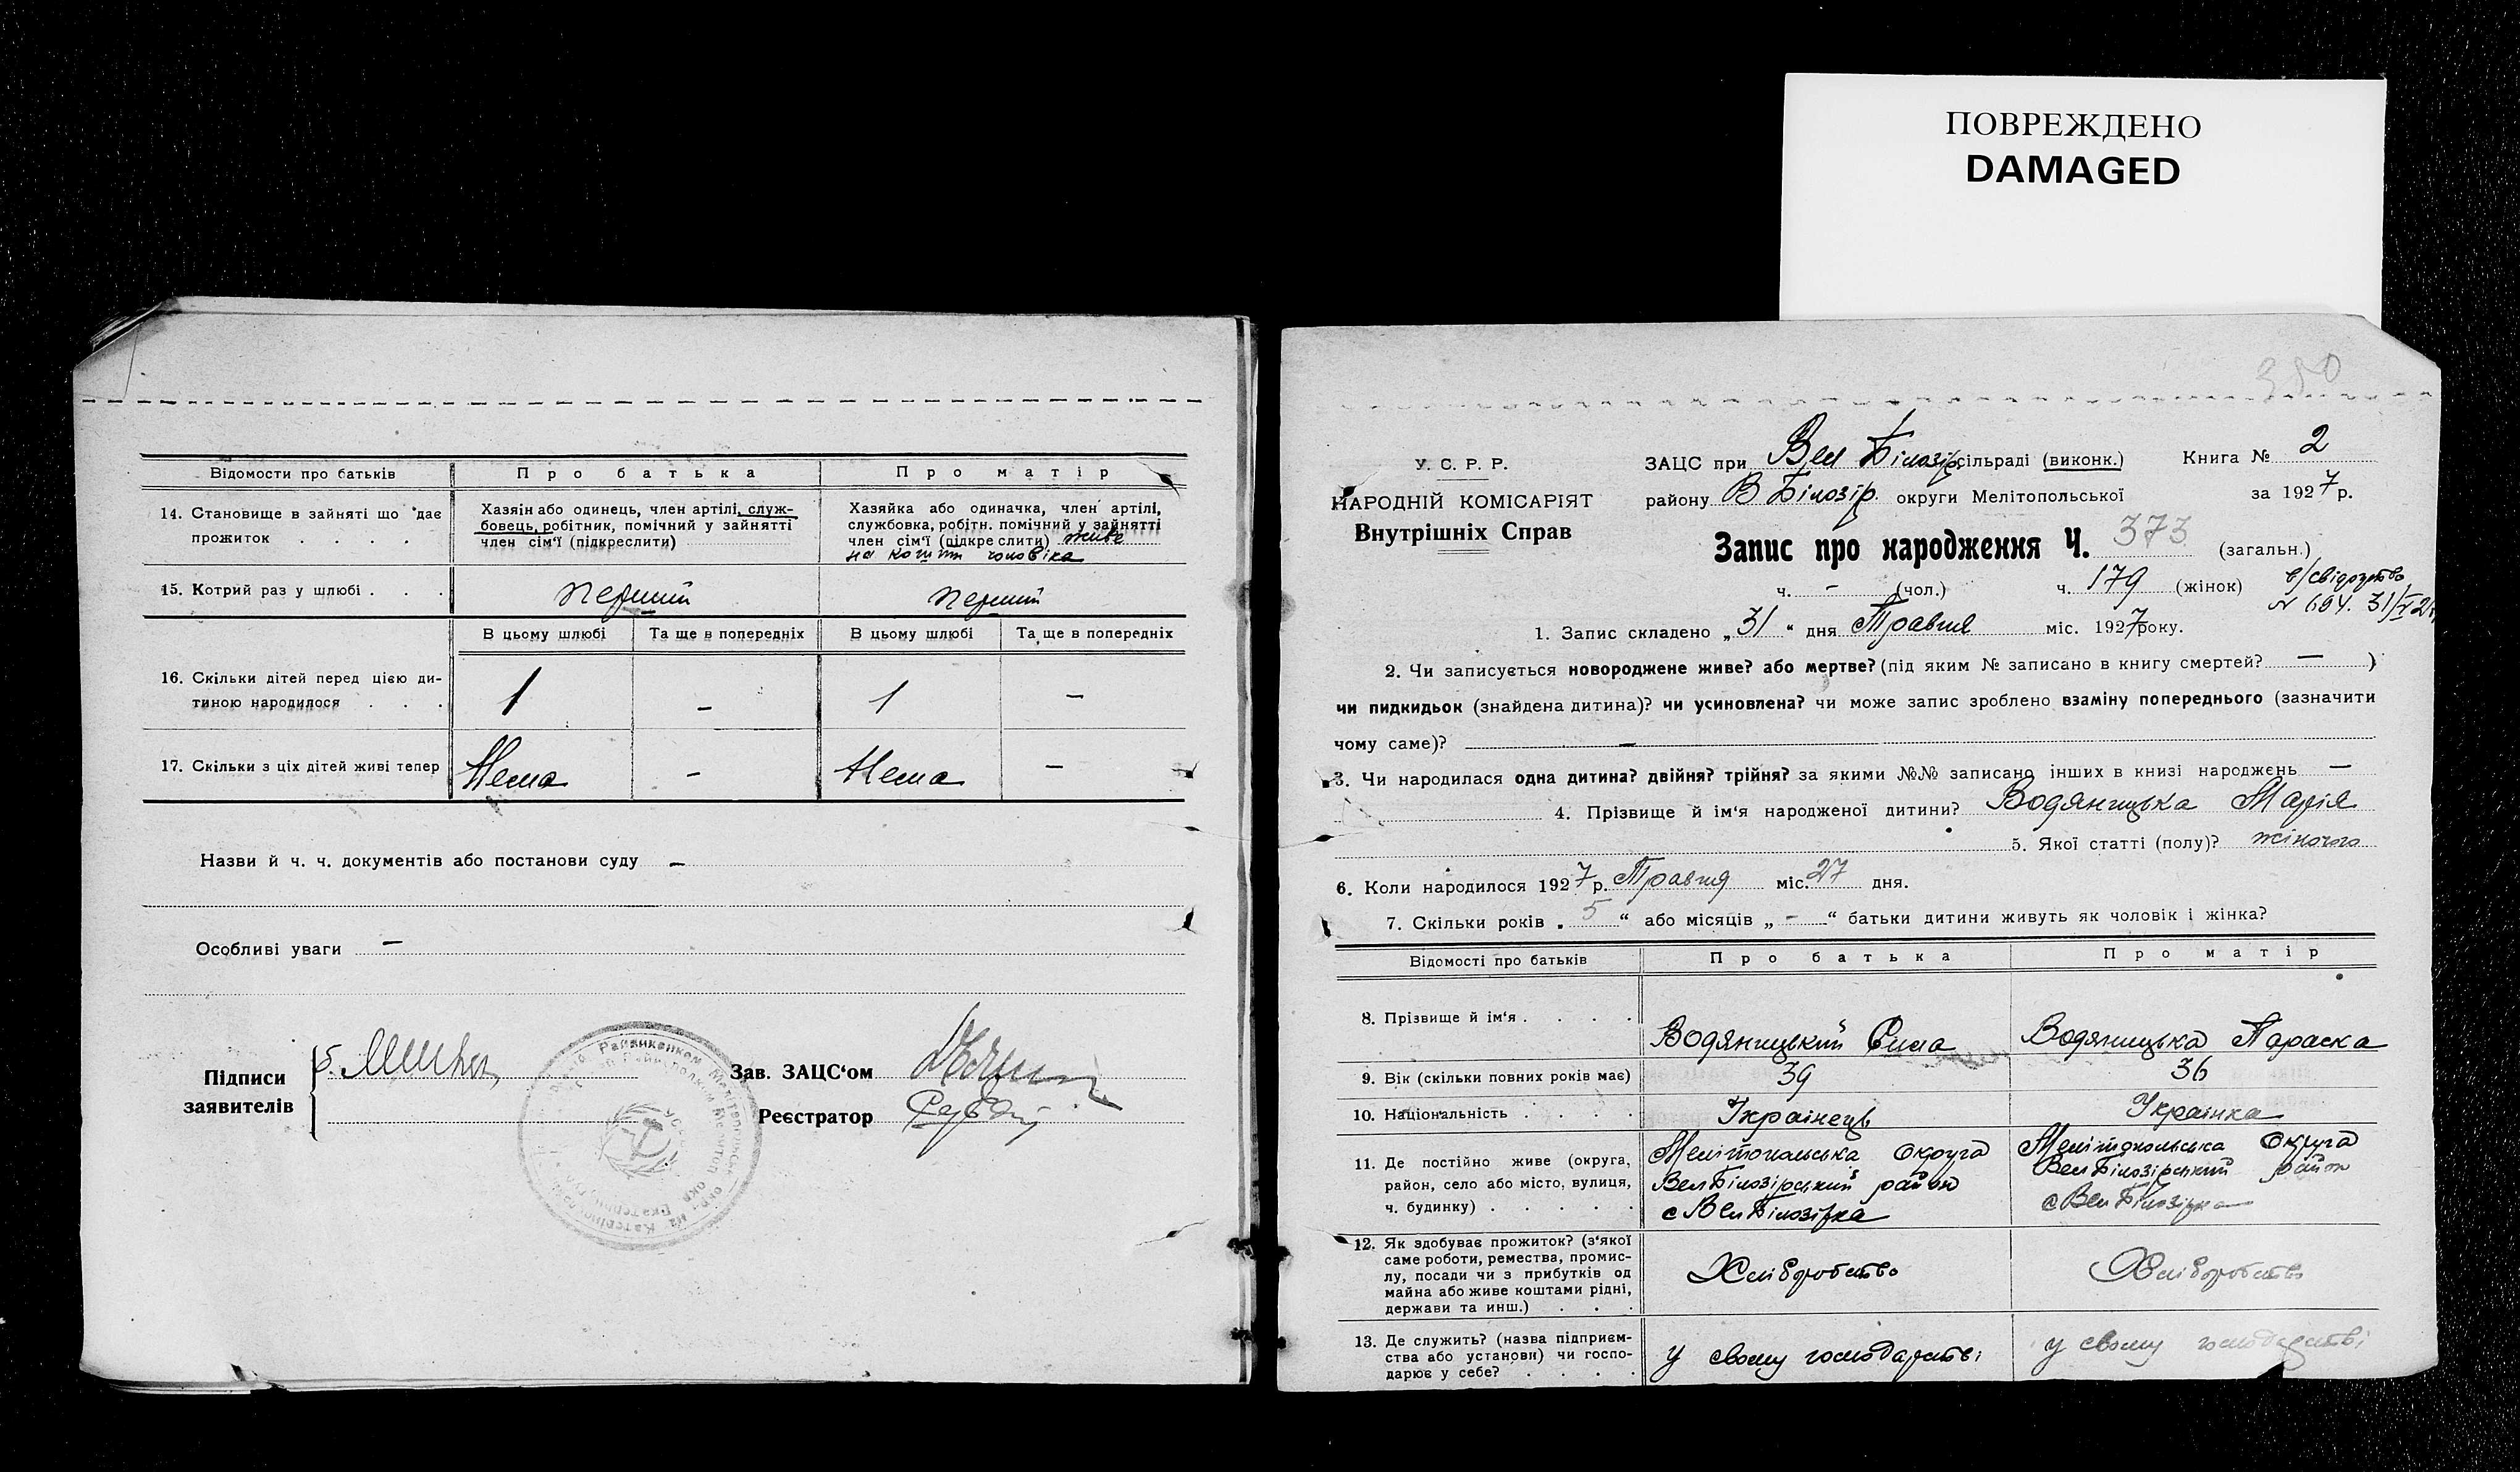 ПОВРЕЖДЕНО
DAMAGED
Відомости про батьків Про батька Про матір
14. Становище в зайняті що дає
прожиток . . . .
Хазяін або одинець, член артілі, служ-
бовець, робітник, помічний у зайнятті
член сім'ї (підкреслити)
Хазяйка або одиначка, член артілі,
службовка, робітн. помічний у зайнятті
член сім'ї (підкре слити) живе
на кошти чоловіка
15. Котрий раз у шлюбі . . . перший перший
В цьому шлюбі Та ще в попередніх В цьому шлюбі Та ще в попередніх
16. Скільки дітей перед цією ди-
тиною народилося . . . 1 - 1 -
17. Скильки з ціх дітей живі тепер Нема - Нема -
Назви й ч. ч. документів або постанови суду -
Особливі уваги -
Підписи
заявителів
Зав. ЗАЦС'ом
Реєстратор
380
У. С. Р. Р.
НАРОДНІЙ КОМІСАРІЯТ
Внутрішніх Справ
ЗАЦС при Вел Білозір. сільраді (виконк.) Книга № 2
району В Білозір. округи Мелітопольської за 1927 р.
Запис про народження Ч. 373 (загальн.)
ч. - (чол.) ч. 179 (жінок)
№ 694. 31/V 27
1. Запис складено „31“ дня Травня міс. 1927 року.
2. Чи записується новороджене живе? або мертве? (під яким № записано в книгу смертей? — )
чи пидкидьок (знайдена дитина)? чи усиновлена? чи може запис зроблено взаміну попереднього (зазначити
чому саме)? -
3. Чи народилася одна дитина? двійня? трійня? за якими №№ записано інших в книзі народжєнь —
4. Прізвище й ім'я народженої дитини? Водяницька Марія
5. Якої статті (полу)? жіночого
6. Коли народилося 1927 р. Травня міс. 27 дня.
7. Скільки років „5“ або місяців „-“ батьки дитини живуть як чоловік і жінка?
Відомості про батьків Про батька Про матір
8. Прізвище й ім'я . . . . Водяницький Сила Водяницька Параска
9. Вік (скільки повних років має) 39 36
10. Національність . . . . Українець Українка
11. Де постійно живе (округа,
район, село або місто, вулиця,
ч. будинку) . . . . .
Мелітопольська Округа
Вел Білозірський район
с Вел Білозірка
Мелітопольська Округа
Вел Білозірський район
с Вел Білозірка
12. Як здобуває прожиток? (з'якої
саме роботи, ремества, промис-
лу, посади чи з прибутків од
майна або живе коштами рідні,
держави та инш.) . . .
Хліборобство Хліборобство
13. Де служить? (назва підприєм-
ства або установи) чи госпо-
дарює у себе? . . . .
у свому господарстві у свому господарстві